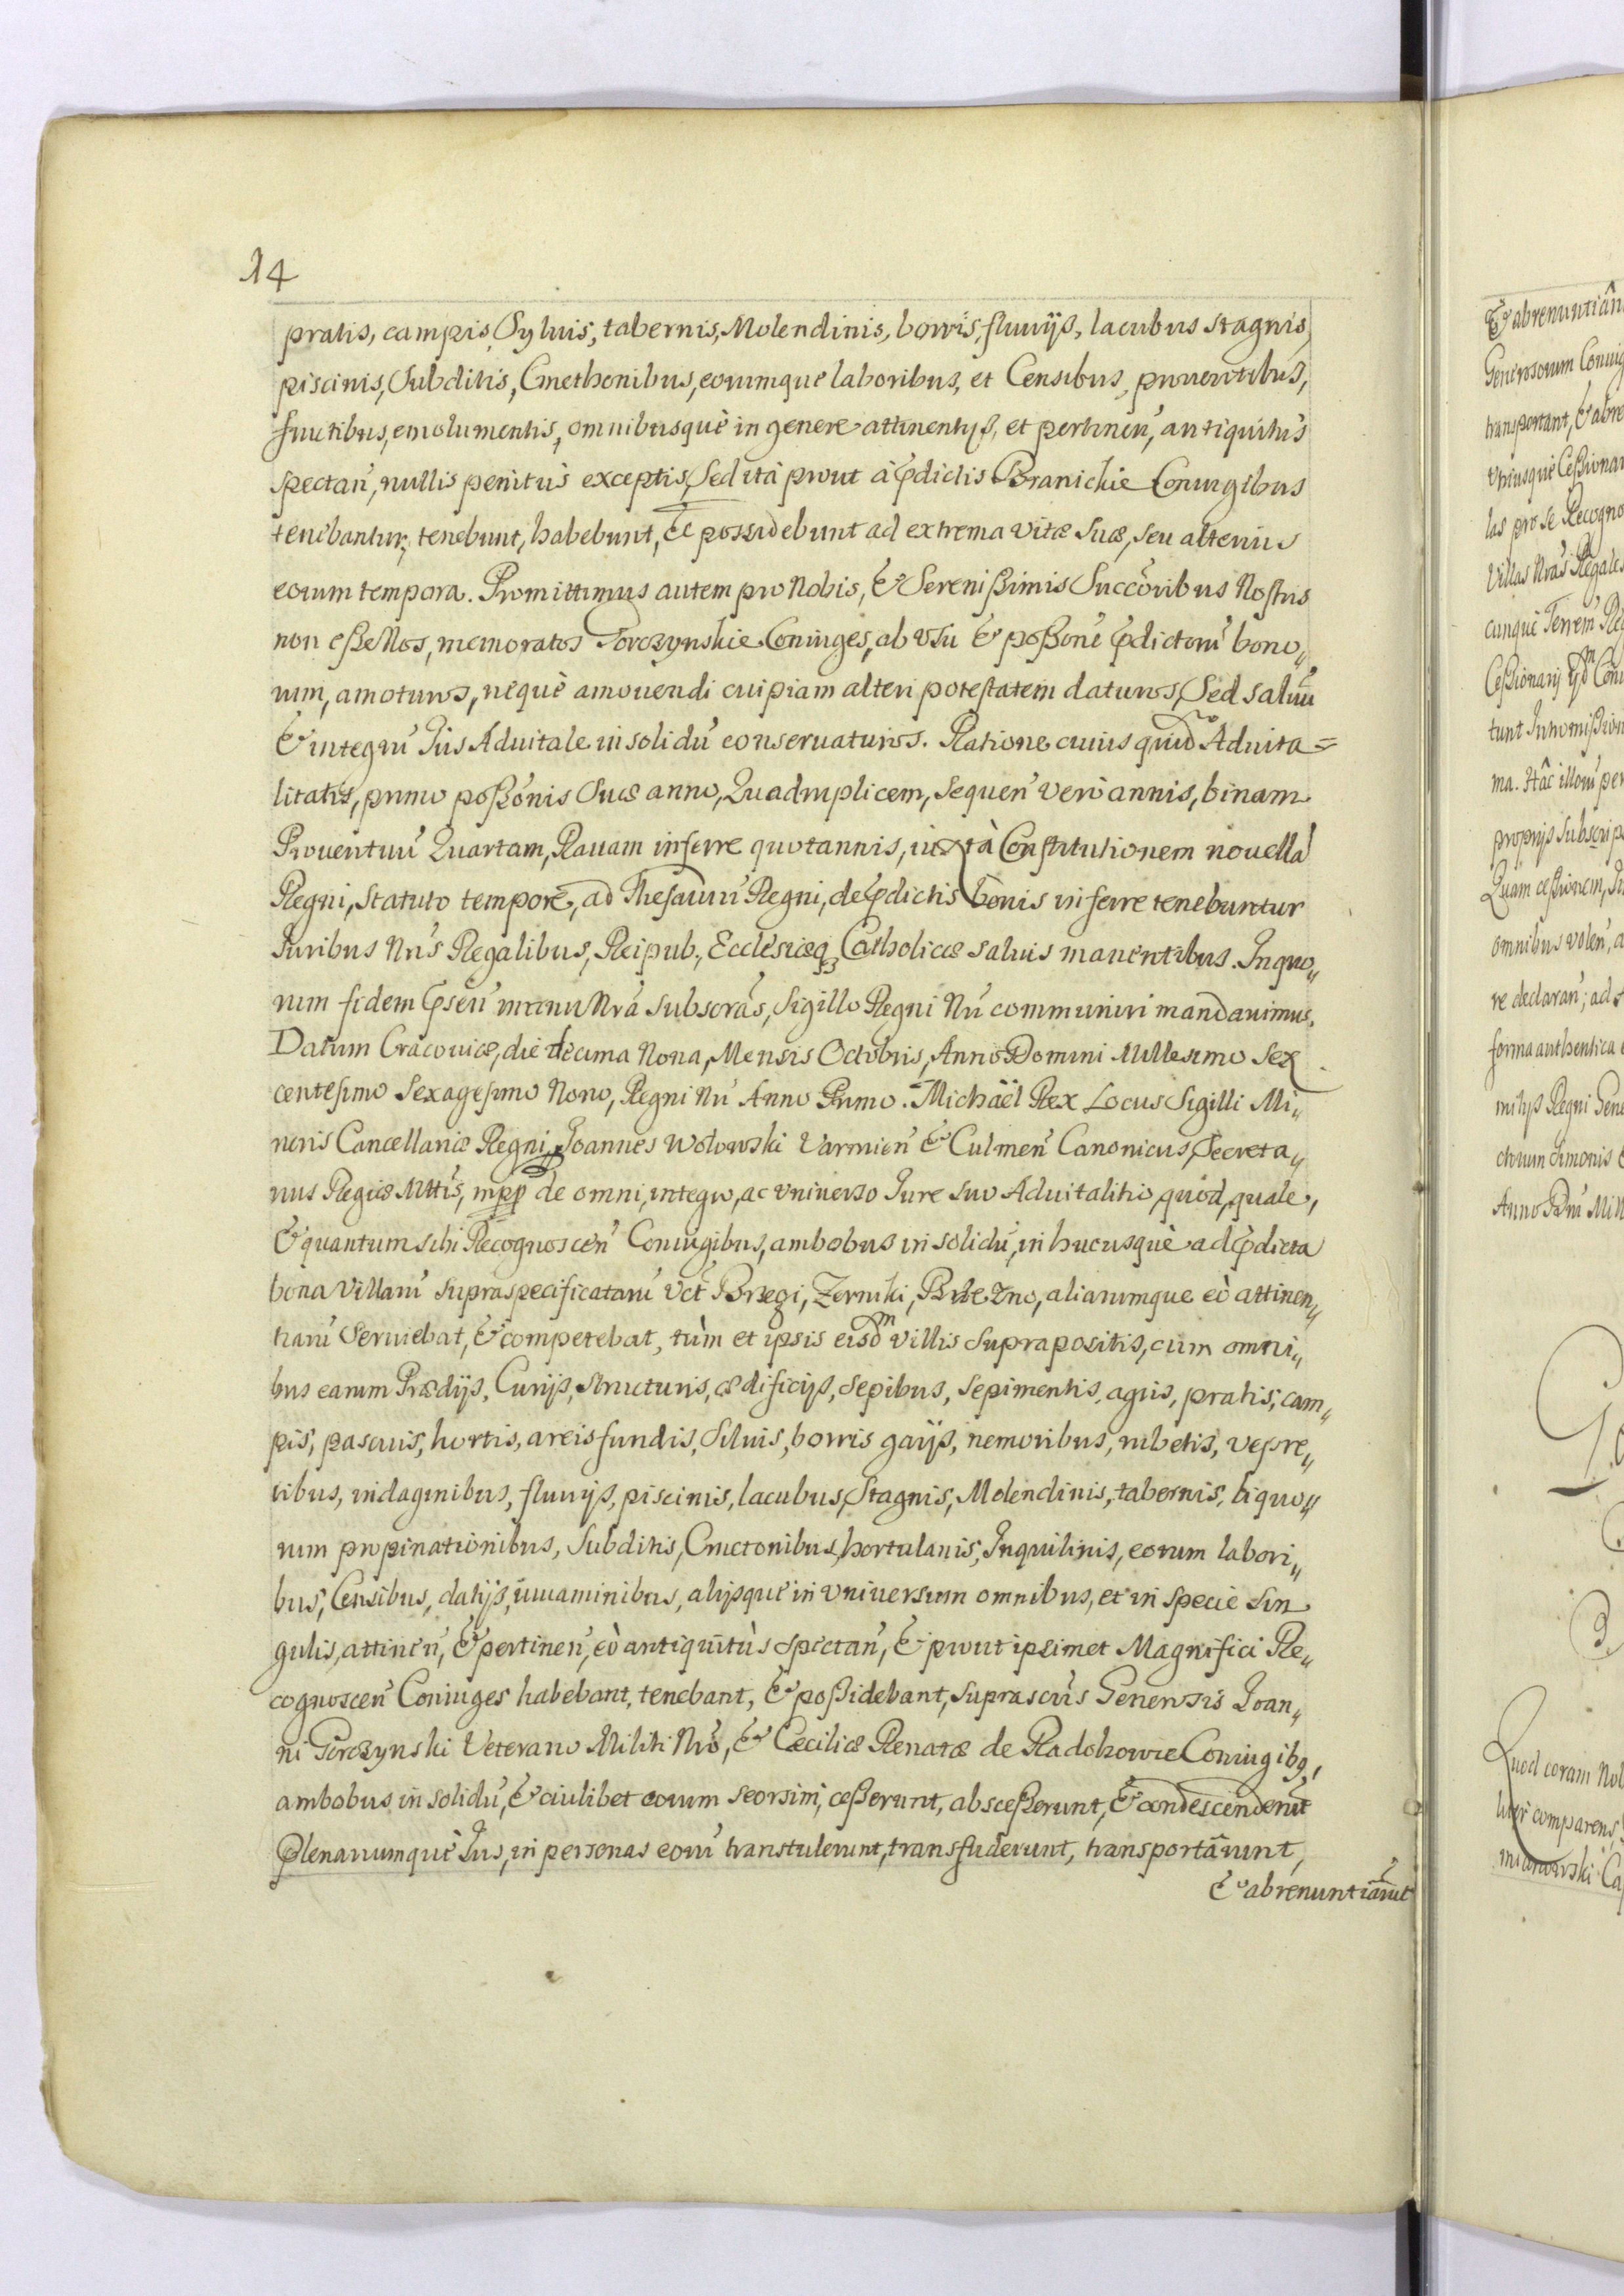 14
pratis, campis, Syluis, tabernis, Molendinis, borris, fluuijs, lacubus stagnis,
piscinis, Subditis, Cmethonibus, eorumquè laboribus, et Censibus, prouentibus,
fructibus, emolumentis, omnibusquè in genere attinentijs, et pertinen̄, antiquitùs
spectan̄, nullis penitùs exceptis, Sed ità prout à p̄dictis Branickie Coniugibus
tenebantur, tenebunt, habebunt, & possidebunt ad extrema vitæ suæ, seu alterius
eorum tempora. Promittimus autem pro Nobis, & Serenißimis Succōribus Nostris
non eße Nos, memoratos Torozynskie Coniuges, ab vsu & poßone p̄dictorū bono„
rum, amoturos, nequè amouendi cuipiam alteri potestatem daturos, Sed saluū
& integrū Jus Aduitale in solidū conseruaturos. Ratione cuius quid͞ Aduita=
litatis, primo poßonis suæ anno, Quadruplicem, sequen̄ verò annis, binam
Prouentuū Quartam, Rauam inferre quotannis, iuxtà Constitutionem nouellā
Regni, statuto tempore, ad Thesaurū Regni, de p̄dictis bonis inferre tenebuntur
Juribus Nr̄is Regalibus, Reipub., Ecclesiæq Catholicæ saluis manentibus. In quo„
rum fidem p̄sen̄ manu Nrā subscrās, Sigillo Regni Nrī communiri mandauimus.
Datum Cracouiæ, die decima Nona, Mensis Octobris, Anno Domini Millesimo Sex
centesimo Sexagesimo Nono, Regni Nrī Anno Primo. Michaël Rex Locus Sigilli Mi„
noris Cancellariæ Regni, Joannes Wołowski Varmien̄ & Culmen̄ Canonicus, Secreta„
rius Regiæ Mttis, mpp de omni, integro, ac vniuerso Jure suo Aduitalitio, quod, quale,
& quantum sibi Recognoscen̄ Coniugibus, ambobus in solidū, in hucusquè ad p̄dicta
bona Villarū supraspecificatarū vct̄ Brzegi, Zerniki, Brzezno, aliarumque eò attinen„
tiarū Seruiebat, & competebat, tùm et ipsis eisdm villis suprapositis, cum omni„
bus earum Prædijs, Curijs, structuris, ædificijs, sepibus, sepimentis, agris, pratis, cam„
pis, pascuis, hortis, areis fundis, Siluis, borris gaijs, nemoribus, rubetis, vepre„
tibus, indaginibus, fluuijs, piscinis, lacubus, Stagnis, Molendinis, tabernis, liquo„
rum propinationibus, Subditis, Cmetonibus, hortulanis, Inquilinis, eorum labori„
bus, Censibus, datijs, iuuaminibus, alijsquè in vniuersum omnibus, et in specie sin
gulis, attinen̄, & pertinen̄, eò antiquitùs spectan̄, & prout ipsimet Magnifici Re„
cognoscen̄ Coniuges habebant, tenebant, & poßidebant, suprascr̄is Generosis Joan„
ni Torozynski Veterano Militi Nrō, & Cæciliæ Renatæ de Radohowie Coniugibq,
ambobus in solidū, & cuilibet eorum seorsim, ceßerunt, absceßerunt, & condescenderūt
Plenariumquè Jus, in personas eorū transtulerunt, transfuderunt, transportârunt,
& abrenuntiârūt